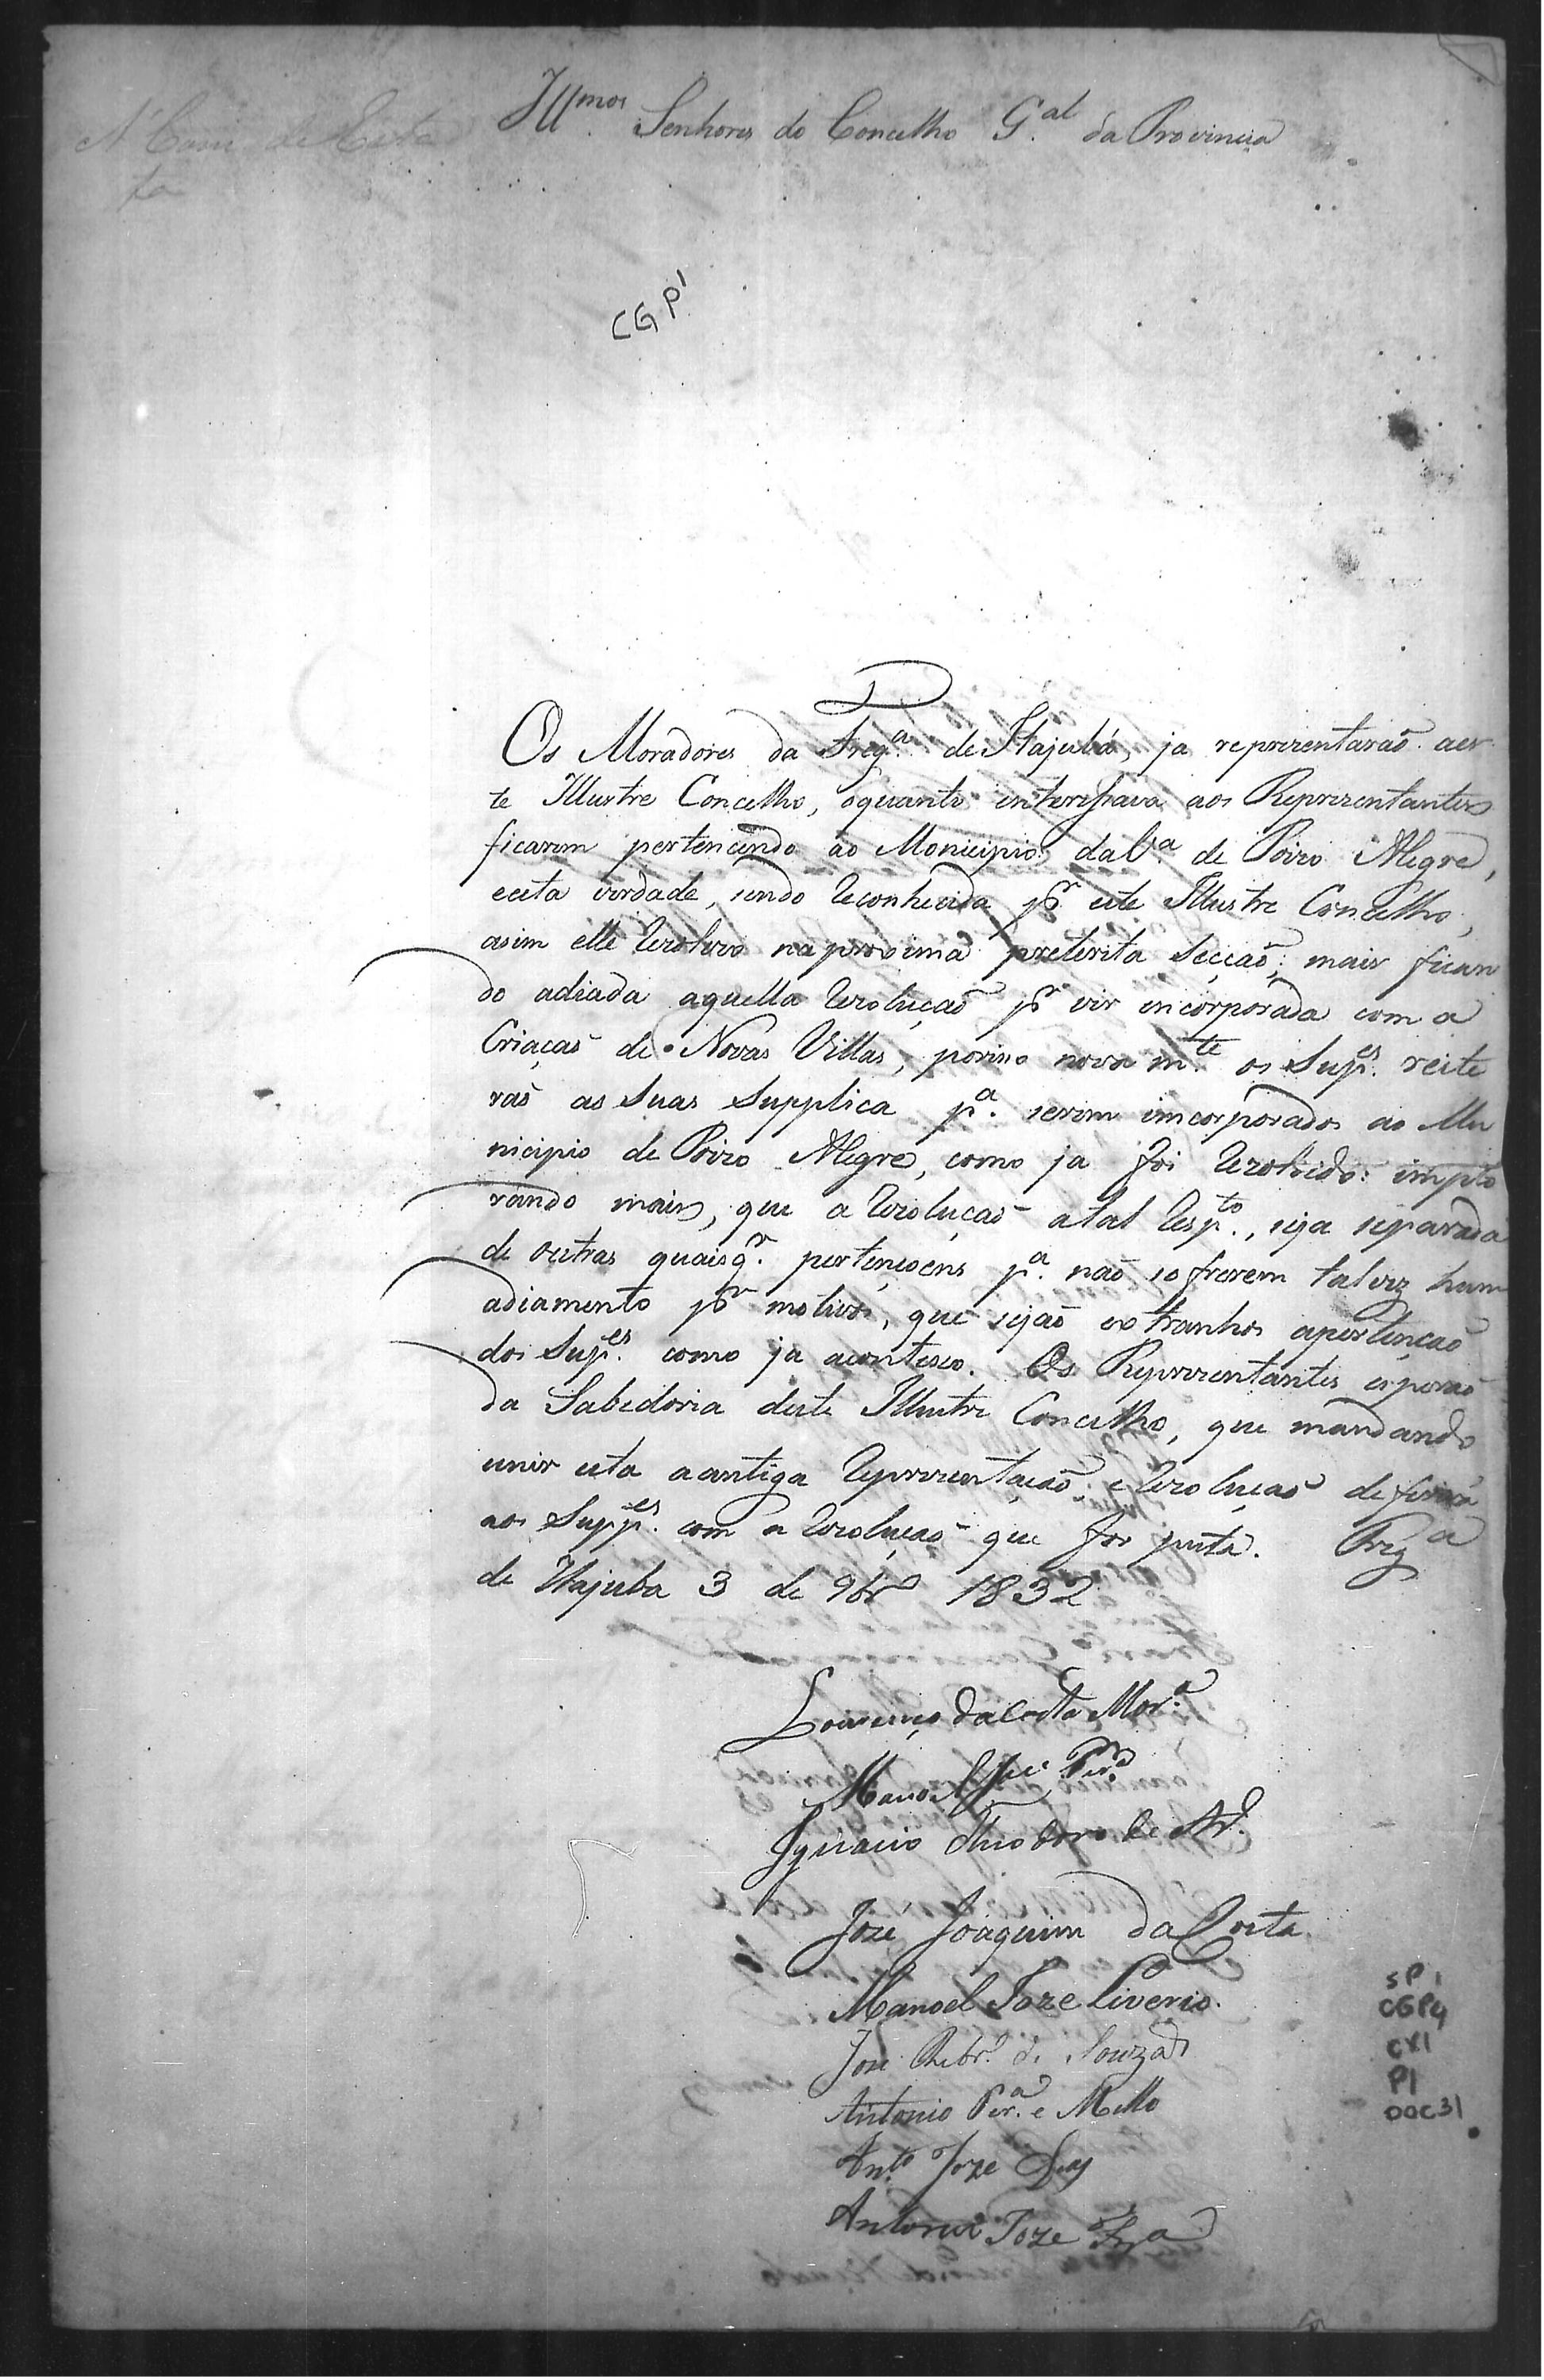 Illmos. Senhores do Concelho G.al da Provincia
CGP1
Os Moradores da Freg.a de Itajubá, ja reprezentarão aes
te Illustre Concelho, oquanto enteressava aos Reprezentantes
ficarem pertencendo ao Monicipio da V.a de Pouzo Alegre,
eesta verdade, sendo reconhecida pr. este Illustre Concelho,
asim elle rezolveo na proxima preterita Secção; mais fican
do adiada aquella rezolução pr. vir encorporada com a
Criação de Novas Villas, porisso nova m.te os Sup.es reite
rão as Suas Supplica p.a serem imcorporados ao Mu
nicipio de Pouzo Alegre, como ja foi rezolvido: implo
rando mais, que a rezolução atal resp.to, seja separada
de outras quaisq.r pertençoens p.a não sofrerem talvez hum
adiamento pr. motivos, que sejão extranhos apertenção
dos Sup.es como ja aconteseo. Os Reprezentantes esperão
da Sabedoria deste Illustre Concelho, que mandando
unir esta aantiga reprezentação, e rezolução deferirá
aos Supp.es com a rezolução que for justa. Freg.a
de Itajuba 3 de 9br.o 1832
Lourenço da Costa Mor.a
Manoel Per.a
Ignacio Theodoro de
José Joaquim da Costa
Manoel Joze Liverio.
José Ribr.o de Souza
Antonio Per.a e Mello
Ant.o Joze
Antonio Joze
SP1
CGP4
CX1
P1
DOC31